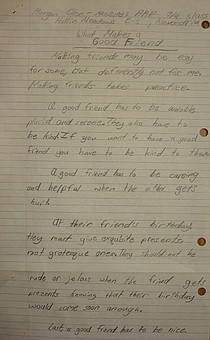 What Makes a
Good Friend
Making friends may be easy
for some, but defenetly not for me.
Making friends takes practice.
A good friend has to be
placid and They also have to
be kind If you want to have a good
friend you have to be kind to
A good friend has to be caring
and helpful when the other gets
hurt.
At their friend's birthday,
they must give exquisite presents
not grotesque should not be
rude or jelous when the friend gets
presents knowing that their birthday
would come soon enough.
Last a good friend has to be nice.